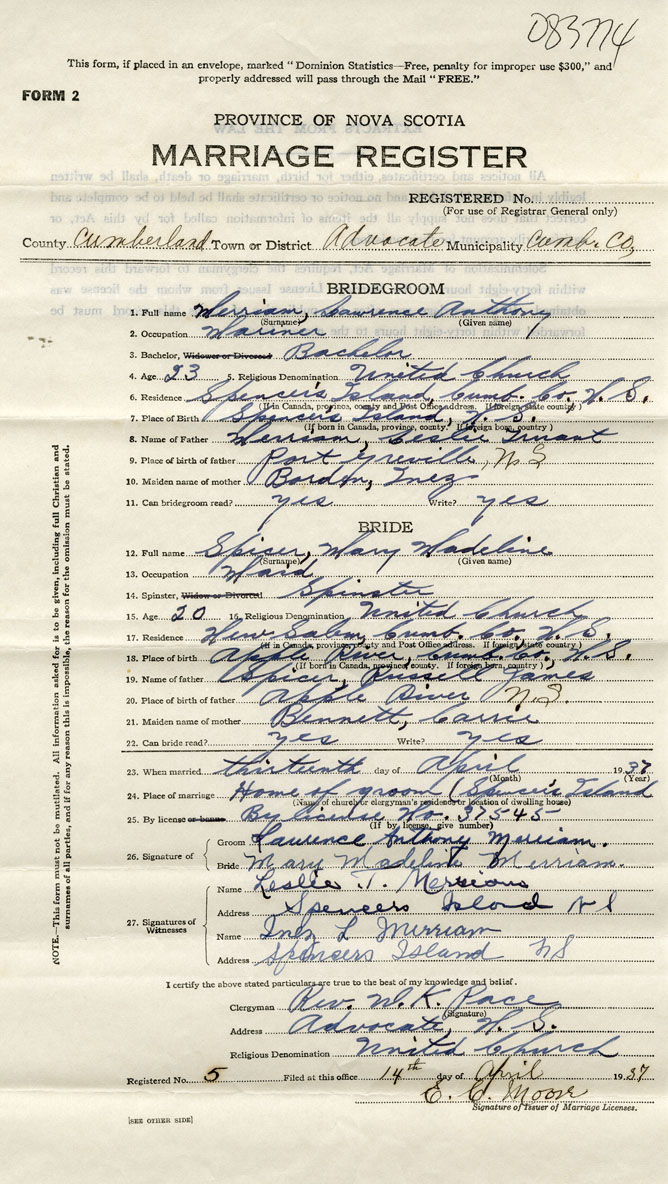 083774
This form, if placed in an envelope, marked "Dominion Statistics—Free, penalty for improper use $300," and
properly addressed will pass through the Mail "FREE."
FORM 2
PROVINCE OF NOVA SCOTIA
MARRIAGE REGISTER
REGISTERED No.
(For use of Registrar General only)
County Cumberland Town or District Advocate Municipality Cumb. Co,
BRIDEGROOM
1. Full name Merriam, Lawrence Anthony
(Surname) (Given name)
2. Occupation Mariner
3. Bachelor, Widower or Divorced Bachelor
4. Age 23 5. Religious Denomination United Church
6. Residence Spencer's Island, Cumb. Co. N. S.
(If in Canada, province, county and Post Office address. If foreign, state country)
7. Place of Birth Spencer's Island, N. S.
(If born in Canada, province, county. If foreign born, country)
8. Name of Father Merriam, Leslie
9. Place of birth of father Port Greville, N.S
10. Maiden name of mother Borden, Inez
11. Can bridegroom read? yes Write? yes
BRIDE
12. Full name Spicer, Mary Madeline
(Surname) (Given name)
13. Occupation Maid
14. Spinster, Widow or Divorced Spinster
15. Age 20 16. Religious Denomination United Church
17. Residence New Salem, Cumb. Co. N. S.
(If in Canada, province, county and Post Office address. If foreign state country)
18. Place of birth Apple River, Cumb. Co. N. S.
(If born in Canada, province, county. If foreign born, country)
19. Name of father Spicer, Russell James
20. Place of birth of father Apple River N.S.
21. Maiden name of mother Bennett, Carrie
22. Can bride read? yes Write? yes
23. When married thirteenth day of April 1937
(Month) (Year)
24. Place of marriage Home of groom (Spencer's Island
(Name of church or clergyman's residence or location of dwelling house)
25. By license or banns By license No. 37545
(If by license, give number)
26. Signature of
Groom Laurence Anthony Merriam.
Bride Mary Madeline Merriam.
27. Signatures of Witnesses
Name Leslie T. Merriam
Address Spencers Island N S
Name Inez L Merriam
Address Spencers Island NS
I certify the above stated particulars are true to the best of my knowledge and belief.
Clergyman Rev. W. K. Pace
(Signature)
Address Advocate, N. S.
Religious Denomination United Church
Registered No. 5 Filed at this office 14th day of April 1937
E. C. Moore
Signature of Issuer of Marriage Licenses.
[SEE OTHER SIDE]
NOTE.—This form must not be mutilated. All information asked for is to be given, including full Christian and
surnames of all parties, and if for any reason this is impossible, the reason for the omission must be stated.